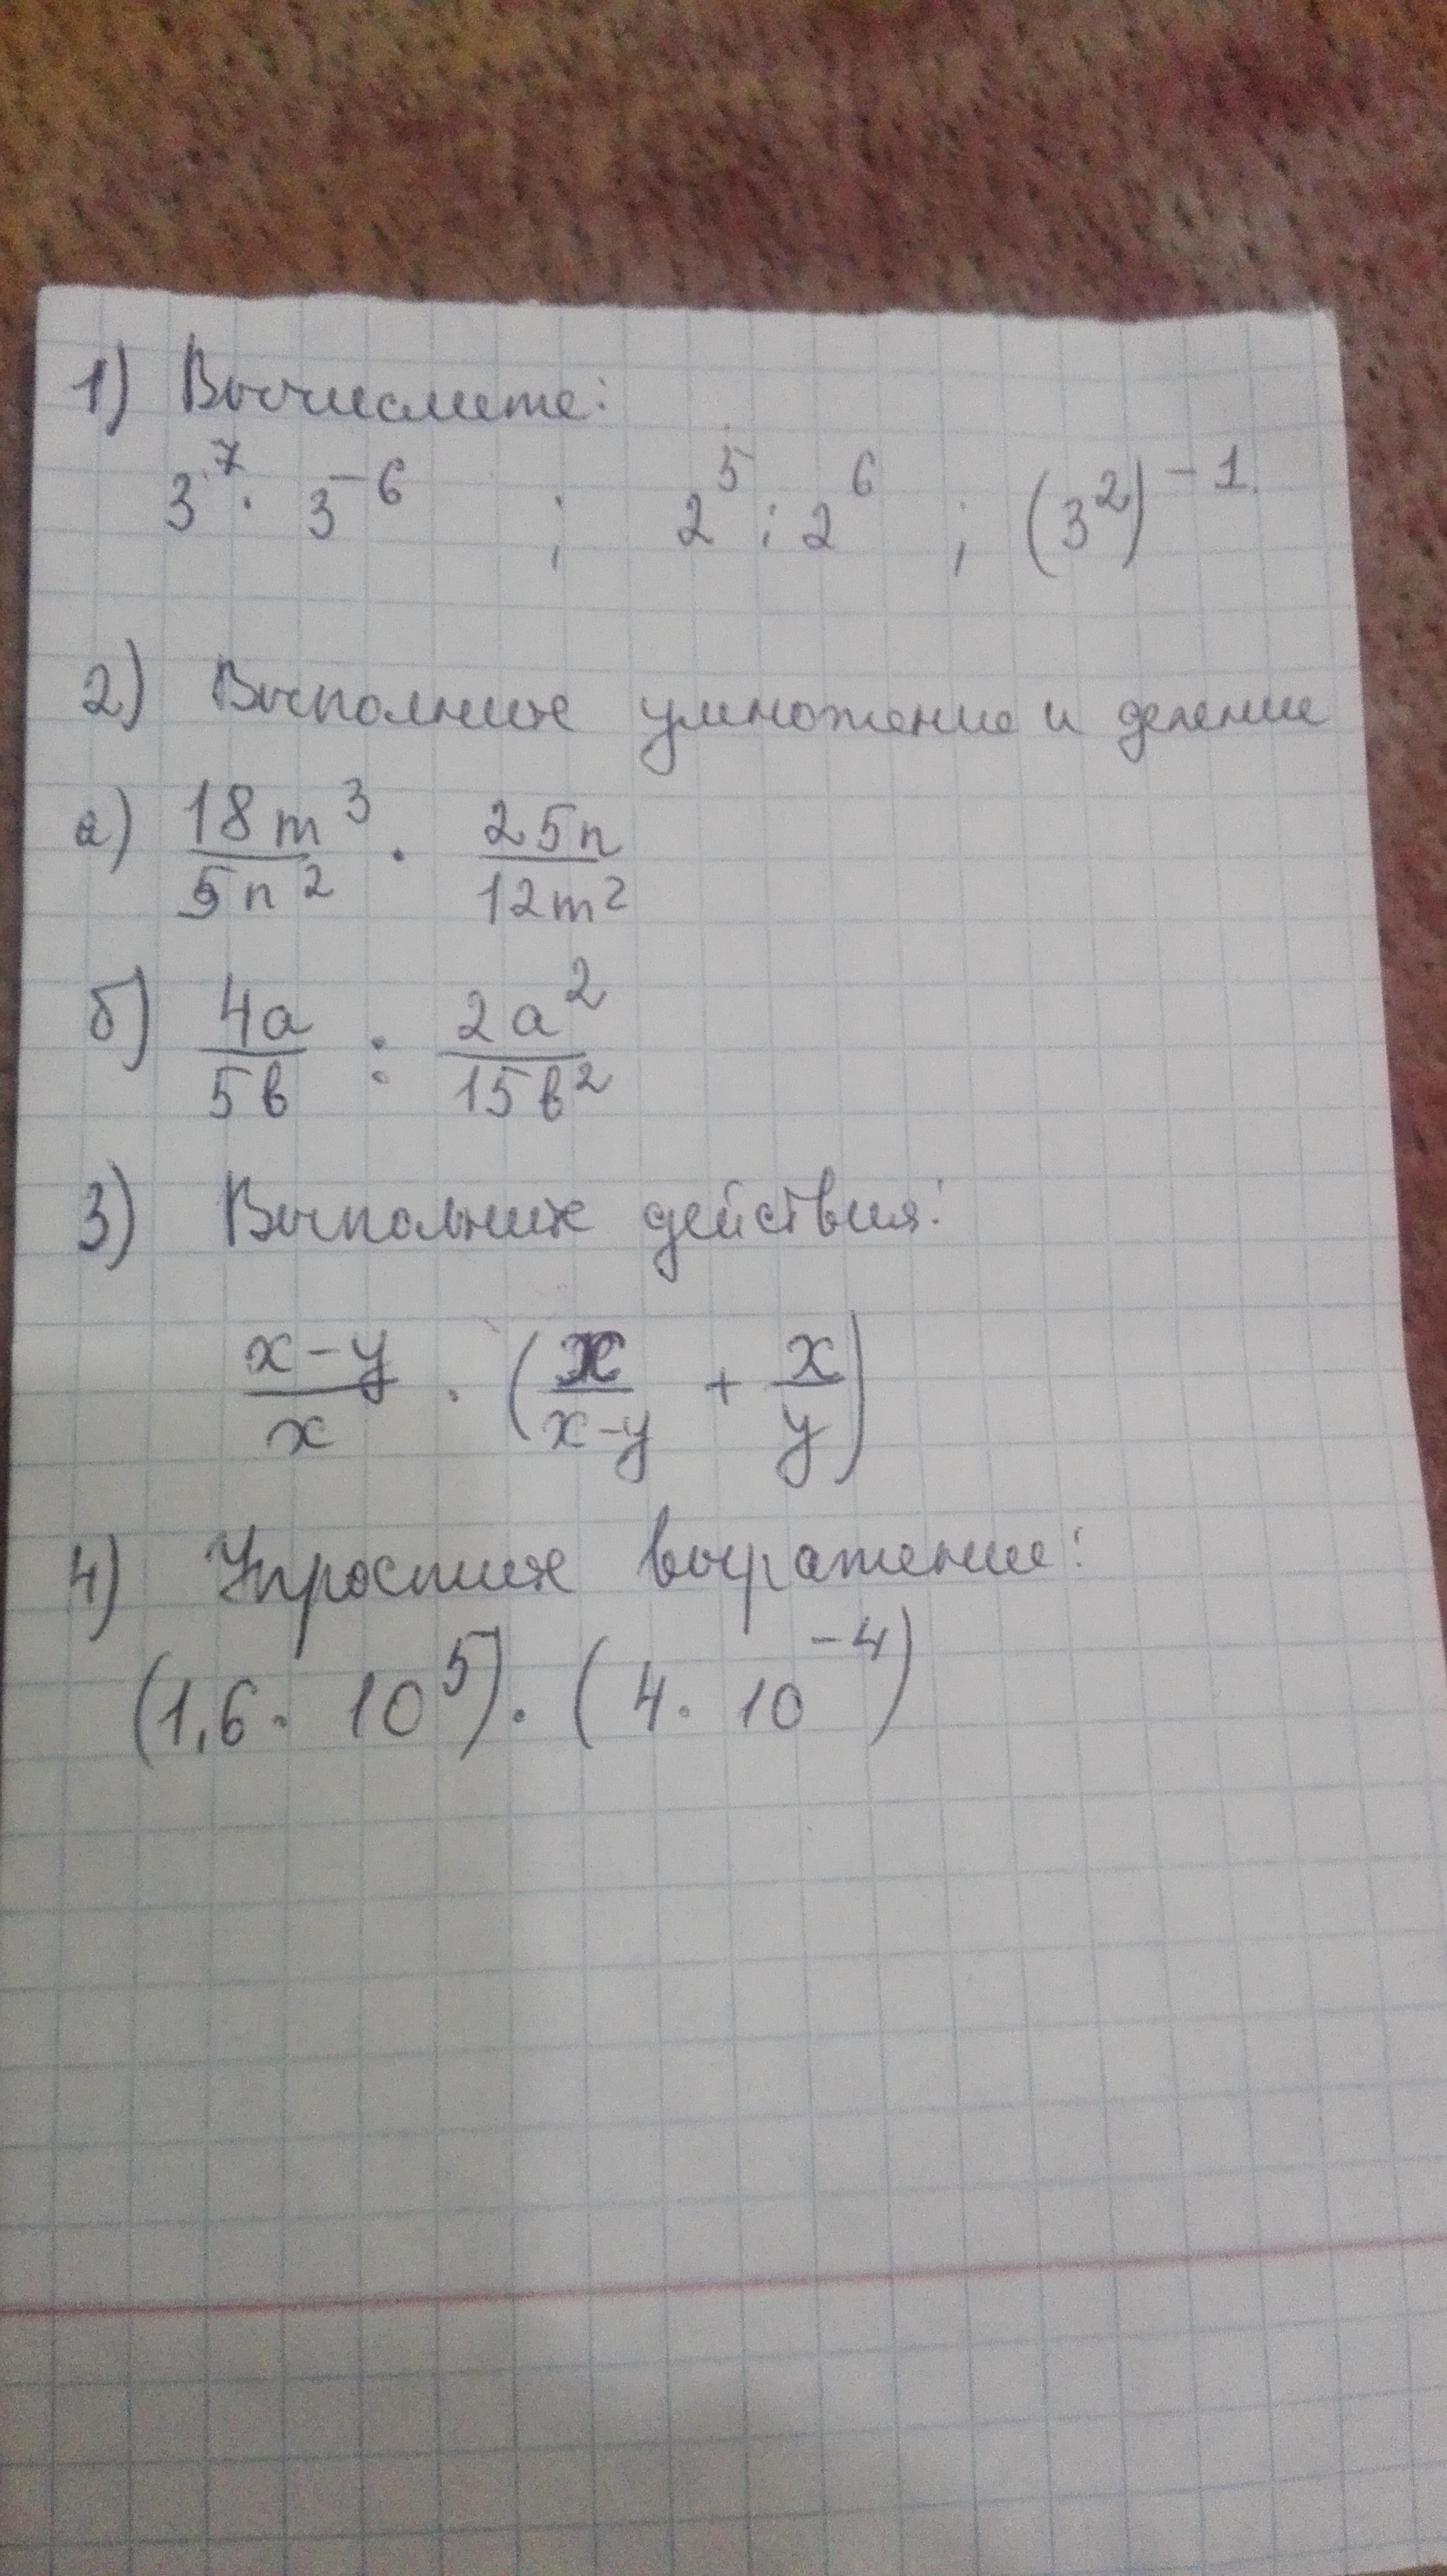 1) Вычислите:
3⁷ · 3⁻⁶ ; 2⁵ : 2⁶ ; (3²)⁻¹.
2) Выполните умножение и деление
а) 18m³/5n² · 25n/12m²
б) 4a/5b : 2a²/15b²
3) Выполните действия:
x-y/x · (x/x-y + x/y)
4) Упростите выражение:
(1,6 · 10⁵) · (4 · 10⁻⁴)